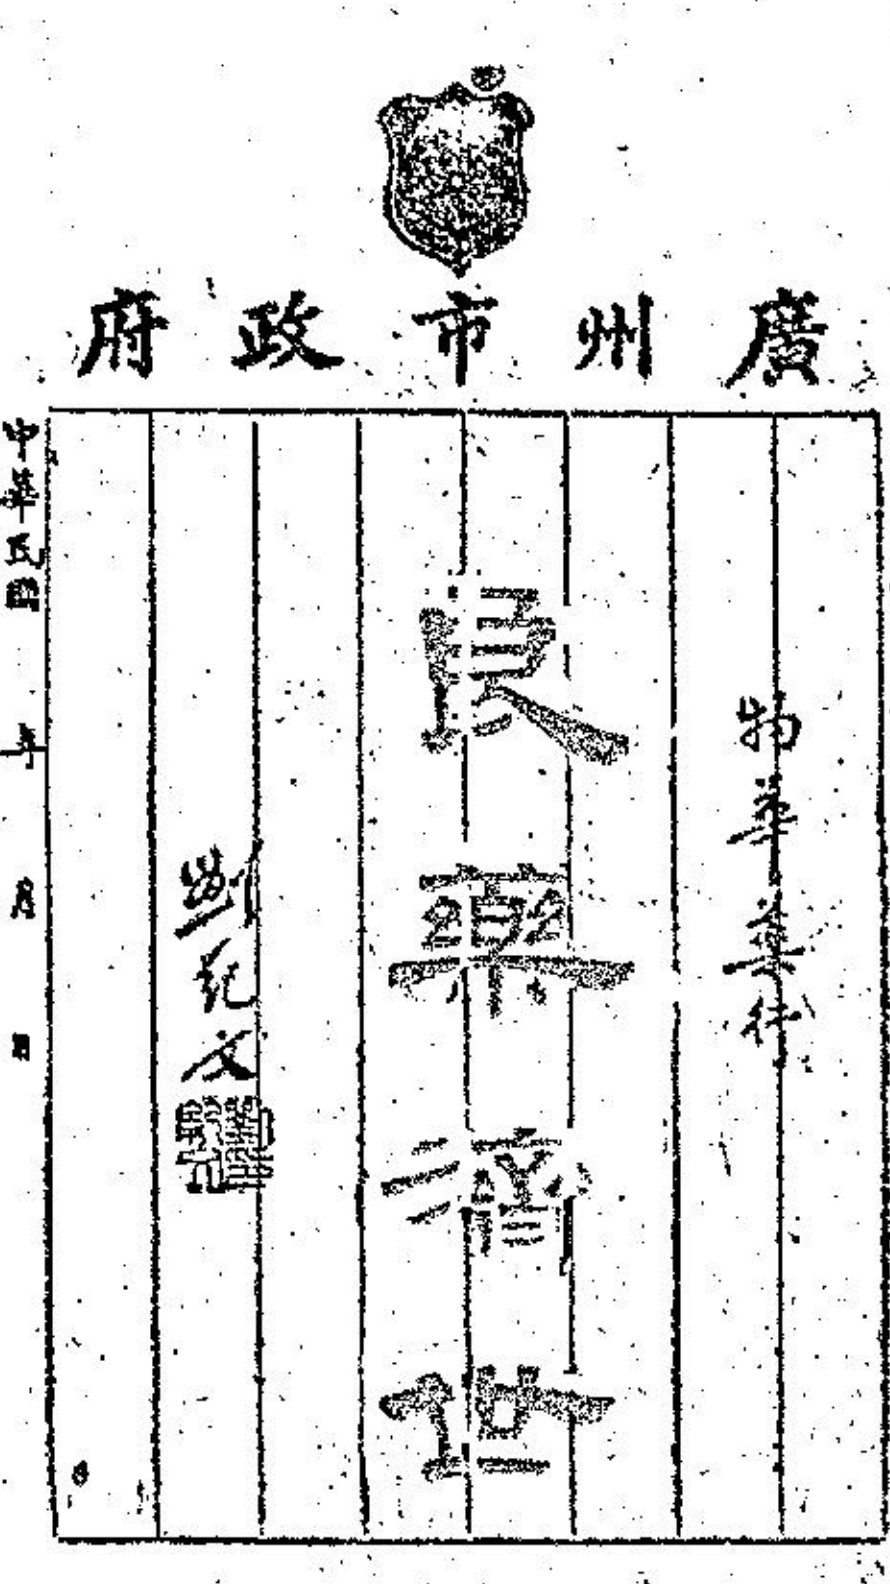 廣州市政府
物華藥行
良藥濟世
劉紀文
中華民國 年 月 日